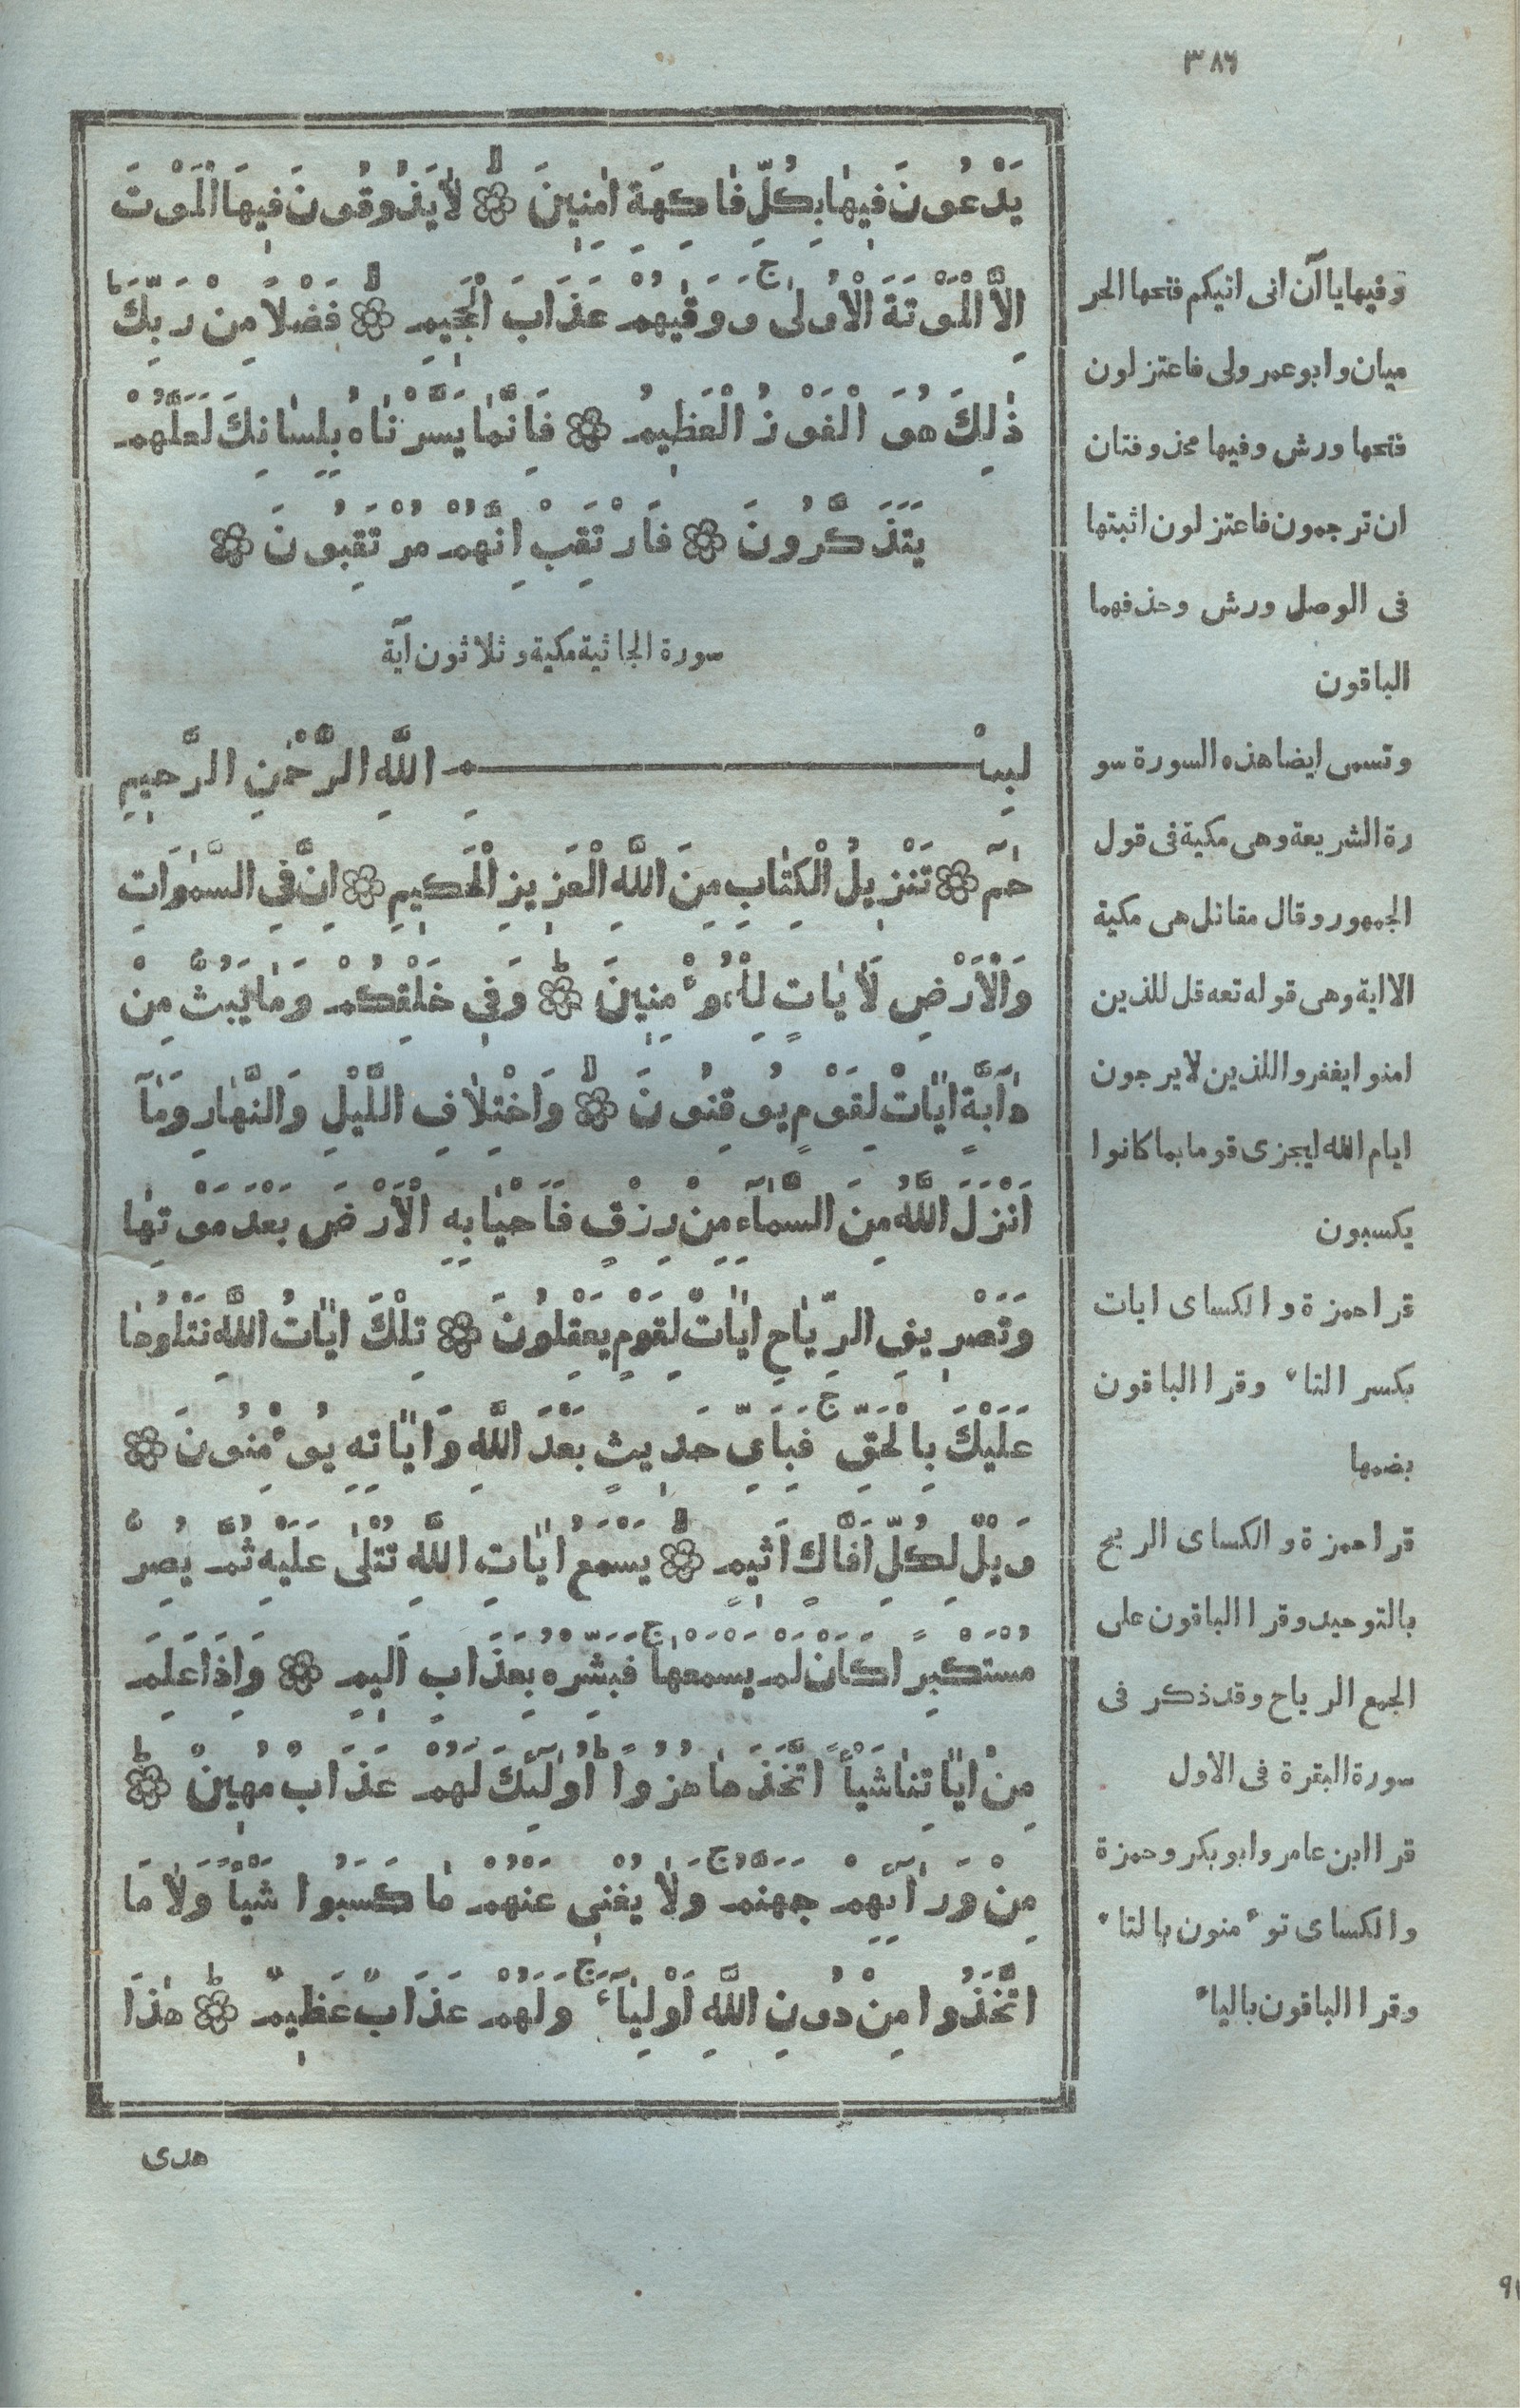 ٣٨٦
يَدْعُونَ فِيهٰا بِكُلِّ فٰاكِهَةٍ اٰمِنِينَ ۙ لٰا يَذُوقُونَ فِيهَا الْمَوْتَ
اِلَّا الْمَوْتَةَ الْاُولٰىۚ وَوَقٰيهُمْ عَذَابَ الْجَحِيمِ ۙ فَضْلًا مِنْ رَبِّكَ ؕ
ذٰلِكَ هُوَ الْفَوْزُ الْعَظِيمُ فَاِنَّمٰا يَسَّرْنٰاهُ بِلِسٰانِكَ لَعَلَّهُمْ
يَتَذَكَّرُونَ فَارْتَقِبْ اِنَّهُمْ مُرْتَقِبُونَ
سورة الجاثية مكية وثلاثون آية
بِسْمِ اللَّهِ الرَّحْمٰنِ الرَّحِيمِ
حٰمٓ تَنْزِيلُ الْكِتٰابِ مِنَ اللَّهِ الْعَزِيزِ الْحَكِيمِ اِنَّ فِي السَّمٰوَاتِ
وَالْاَرْضِ لَاٰيٰاتٍ لِلْمُؤْمِنِينَ ؕ وَفِي خَلْقِكُمْ وَمٰا يَبُثُّ مِنْ
دٰابَّةٍ اٰيٰاتٌ لِقَوْمٍ يُوقِنُونَ ۙ وَاخْتِلٰافِ اللَّيْلِ وَالنَّهٰارِ وَمٰٓا
اَنْزَلَ اللَّهُ مِنَ السَّمٰٓاءِ مِنْ رِزْقٍ فَاَحْيٰا بِهِ الْاَرْضَ بَعْدَ مَوْتِهٰا
وَتَصْرِيفِ الرِّيٰاحِ اٰيٰاتٌ لِقَوْمٍ يَعْقِلُونَ تِلْكَ اٰيٰاتُ اللَّهِ نَتْلُوهٰا
عَلَيْكَ بِالْحَقِّۚ فَبِاَيِّ حَدِيثٍ بَعْدَ اللَّهِ وَاٰيٰاتِهِ يُؤْمِنُونَ
وَيْلٌ لِكُلِّ اَفَّاكٍ اَثِيمٍ ۙ يَسْمَعُ اٰيٰاتِ اللَّهِ تُتْلٰى عَلَيْهِ ثُمَّ يُصِرُّ
مُسْتَكْبِرًا كَاَنْ لَمْ يَسْمَعْهٰاۚ فَبَشِّرْهُ بِعَذَابٍ اَلِيمٍ وَاِذَا عَلِمَ
مِنْ اٰيٰاتِنٰا شَيْـًٔا اتَّخَذَهٰا هُزُوًاؕ اُولٰٓئِكَ لَهُمْ عَذَابٌ مُهِينٌ ؕ
مِنْ وَرَآئِهِمْ جَهَنَّمُۚ وَلٰا يُغْنِي عَنْهُمْ مٰا كَسَبُوا شَيْـًٔا وَلٰا مَا
اتَّخَذُوا مِنْ دُونِ اللَّهِ اَوْلِيٰٓاءَۚ وَلَهُمْ عَذَابٌ عَظِيمٌ ؕ هٰذَا
هدى
وفيها ياآن انى اتيكم فتحها الحر
ميان وابو عمر ولى فاعتزلون
فتحها ورش وفيها محذوفتان
ان ترجمون فاعتزلون اثبتها
فى الوصل ورش وحذفهما
الباقون
وتسمى ايضا هذه السورة سو
رة الشريعة وهى مكية فى قول
الجمهور وقال مقاتل هى مكية
الا اية وهى قوله تعه قل للذين
امنوا يغفروا اللذين لا يرجون
ايام الله ليجزى قوما بما كانوا
يكسبون
قرا حمزة والكساى ايات
بكسر التاء وقرا الباقون
بضمها
قرا حمزة والكساى الريح
بالتوحيد وقرا الباقون على
الجمع الرياح وقد ذكر فى
سورة البقرة فى الاول
قرا ابن عامر وابو بكر وحمزة
والكساى تؤمنون بالتاء
وقرا الباقون بالياء